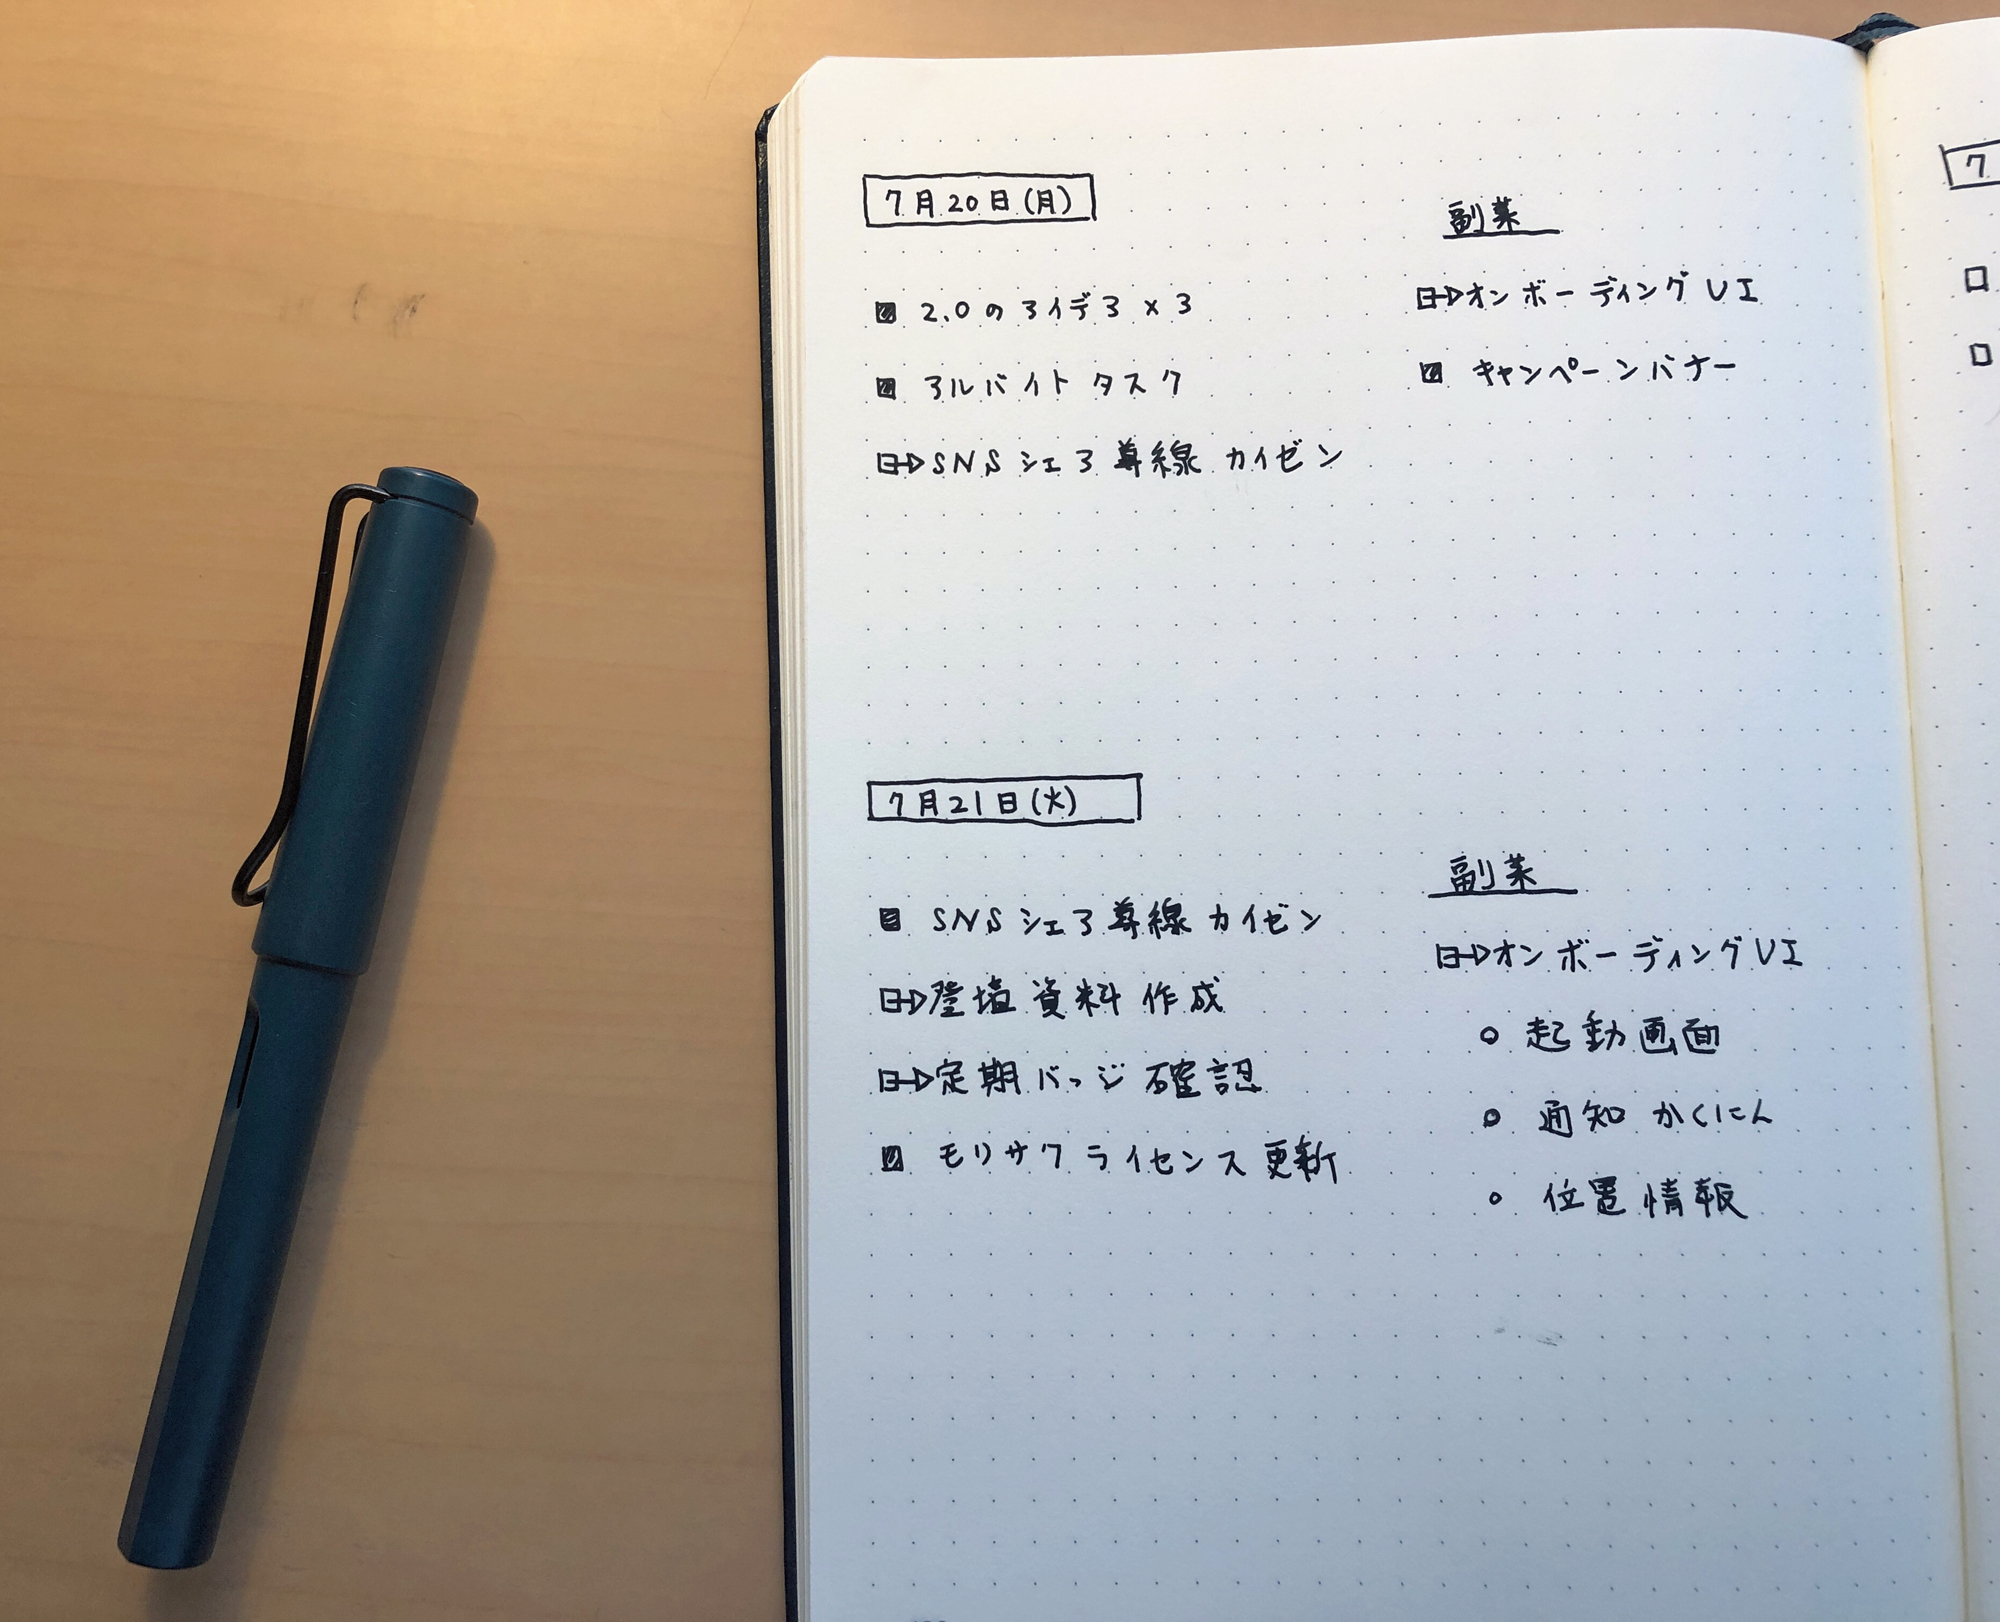 7月20日(月)
2.0のアイデア×3
アルバイトタスク
SNSシェア導線カイゼン
副業
オンボーディングUI
キャンペーンバナー
7月21日(火)
SNSシェア導線カイゼン
登壇資料作成
定期バッジ確認
モリサワライセンス更新
副業
オンボーディングUI
起動画面
通知かくにん
位置情報
7